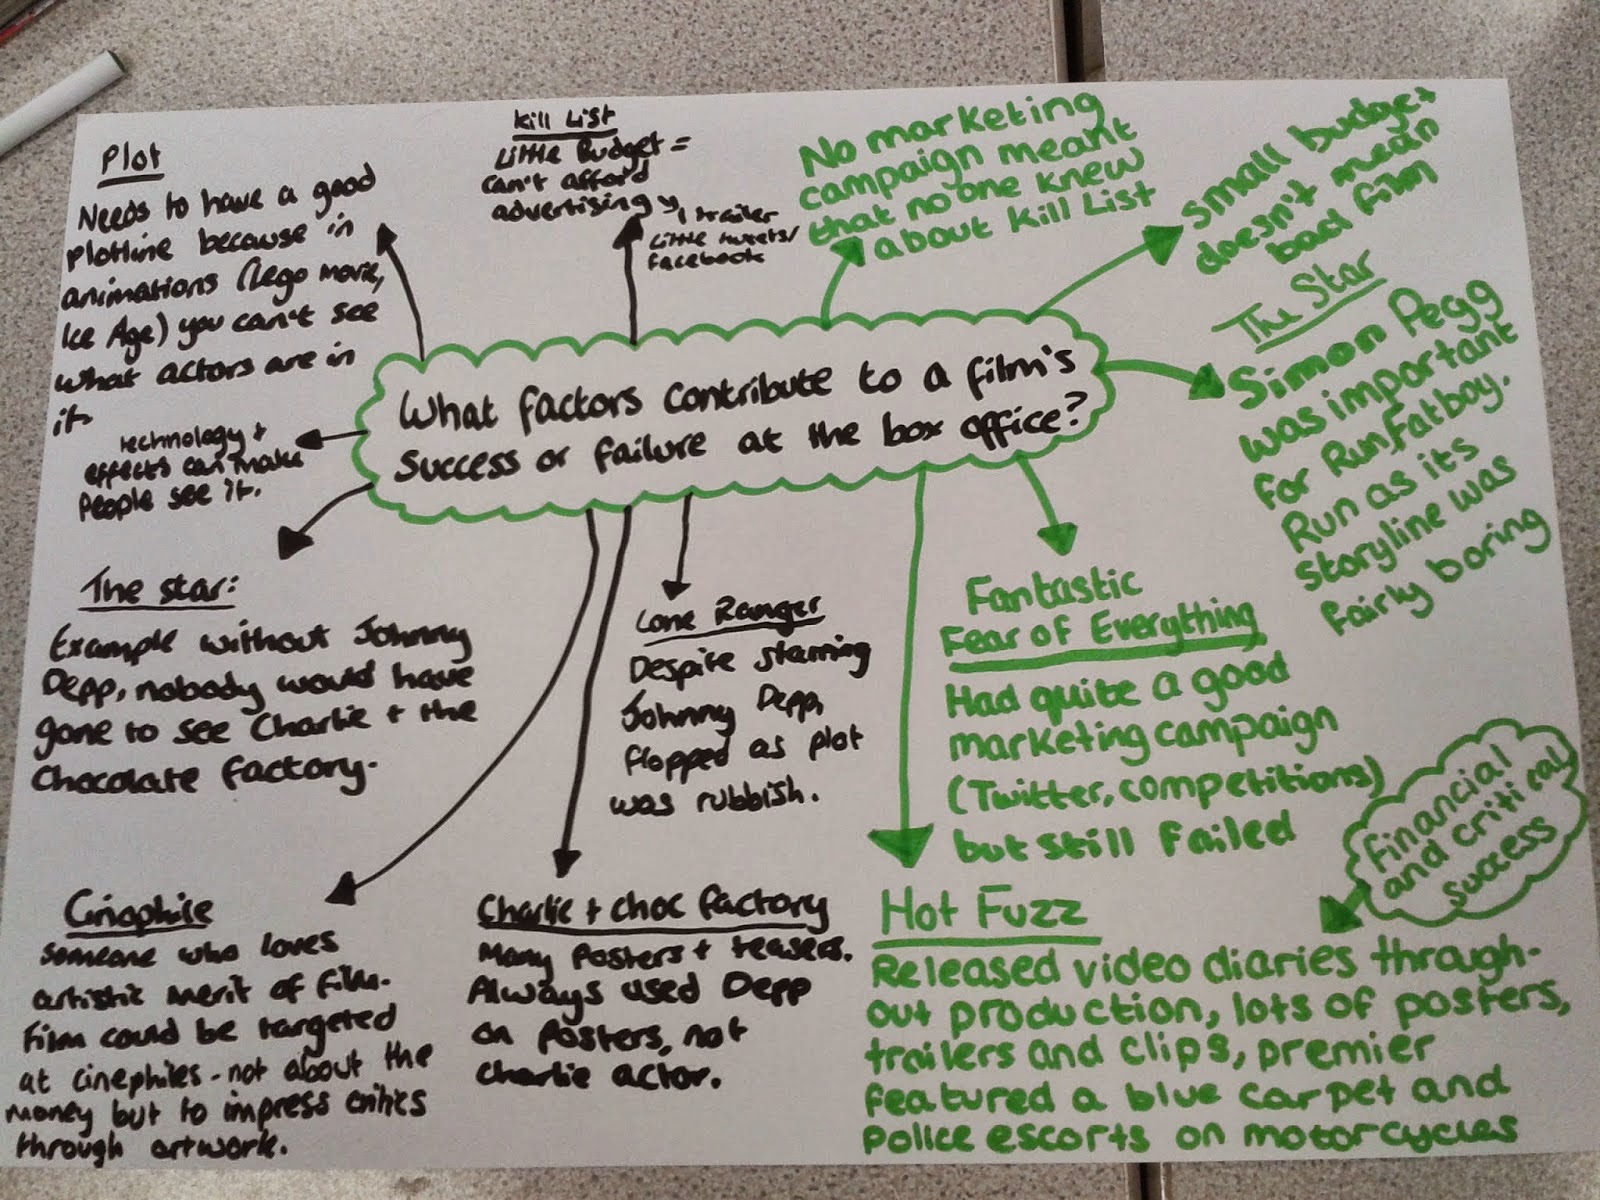 What factors contribute to a film's
Success or failure at the box office?
Plot
Needs to have a good
plotline because in
animations (Lego Movie,
Ice Age) you can't see
what actors are in
it.
Kill List
Little Budget =
can't afford
advertising
1 trailer
Little tweets/
facebook
No marketing
campaign meant
that no one knew
about Kill List
small budget
doesn't mean
bad film
The Star
Simon Pegg
was important
for Run, Fatboy.
Run as its
storyline was
fairly boring
technology +
effects can make
People see it.
The star:
Example without Johnny
Depp, nobody would have
gone to see Charlie + the
Chocolate factory.
Lone Ranger
Despite starring
Johnny Depp,
flopped as plot
was rubbish.
Fantastic
Fear of Everything
Had quite a good
marketing campaign
(Twitter, competitions)
but still failed
Financial
and critical
success
Cinephile
someone who loves
artistic merit of film.
Film could be targeted
at cinephiles - not about the
money but to impress critics
through artwork.
Charlie + choc factory
Many Posters + teasers.
Always used Depp
on posters, not
Charlie actor.
Hot Fuzz
Released video diaries through-
out production, lots of posters,
trailers and clips, premier
featured a blue carpet and
police escorts on motorcycles